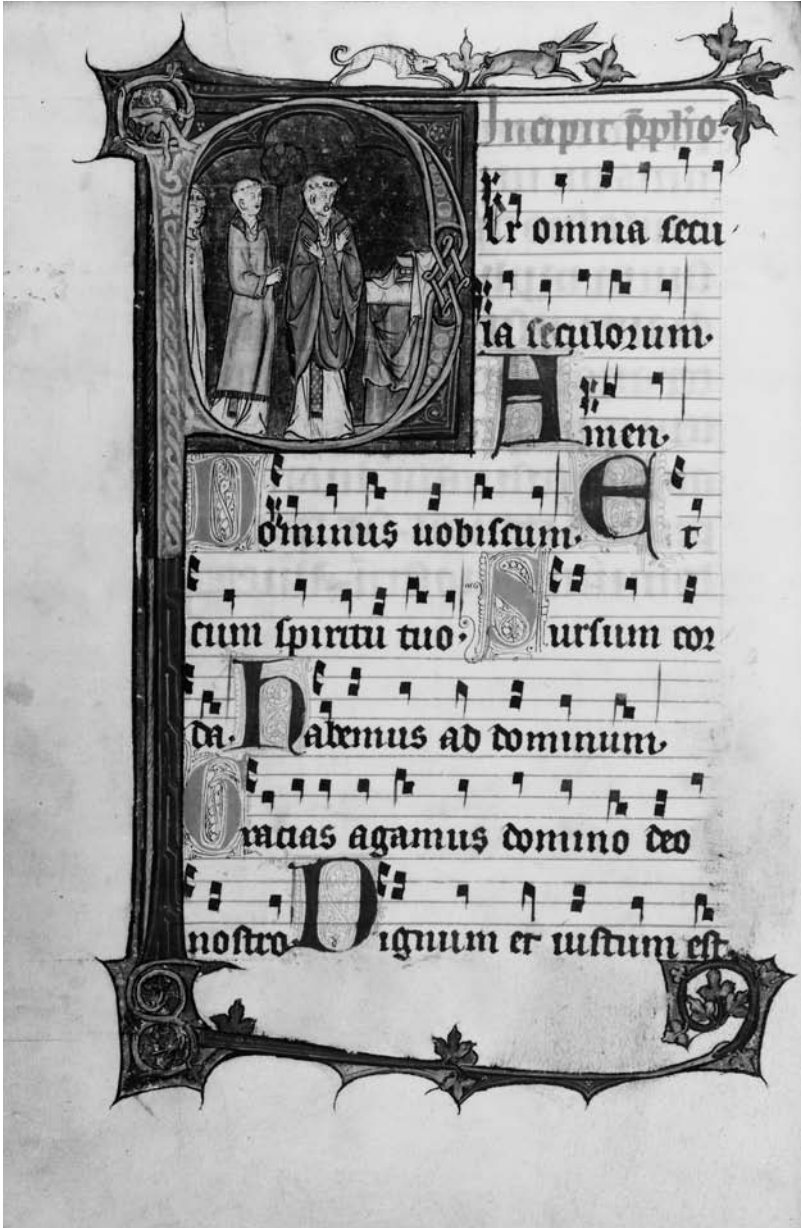 Incipit p̄phio.
Per omnia secu
la seculorum.
Amen.
Dominus uobiscum. Et
cum spiritu tuo. Sursum cor
da. Habemus ad dominum.
Gracias agamus domino deo
nostro. Dignum et iustum est.